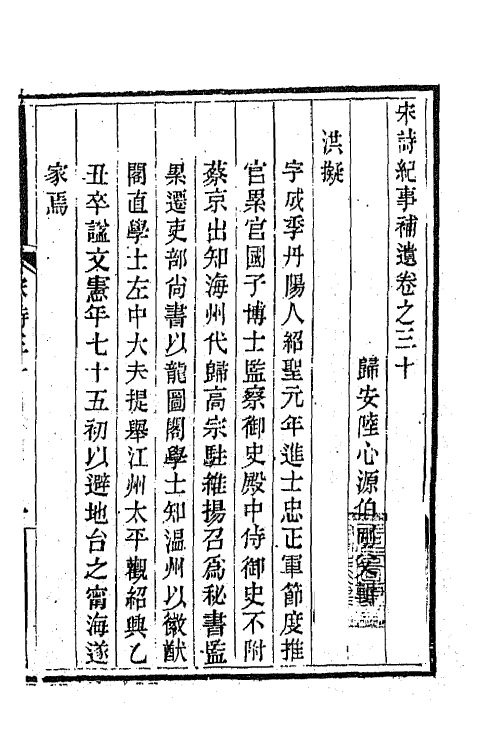 宋詩紀事補遺卷之三十
歸安陸心源伯剛父輯
洪擬
字成季丹陽人紹聖元年進士忠正軍節度推
官累官國子博士監察御史殿中侍御史不附
蔡京出知海州代歸高宗駐維揚召爲秘書監
累遷吏部尚書以龍圖閣學士知温州以徽猷
閣直學士左中大夫提舉江州太平觀紹興乙
丑卒謚文憲年七十五初以避地台之甯海遂
家焉